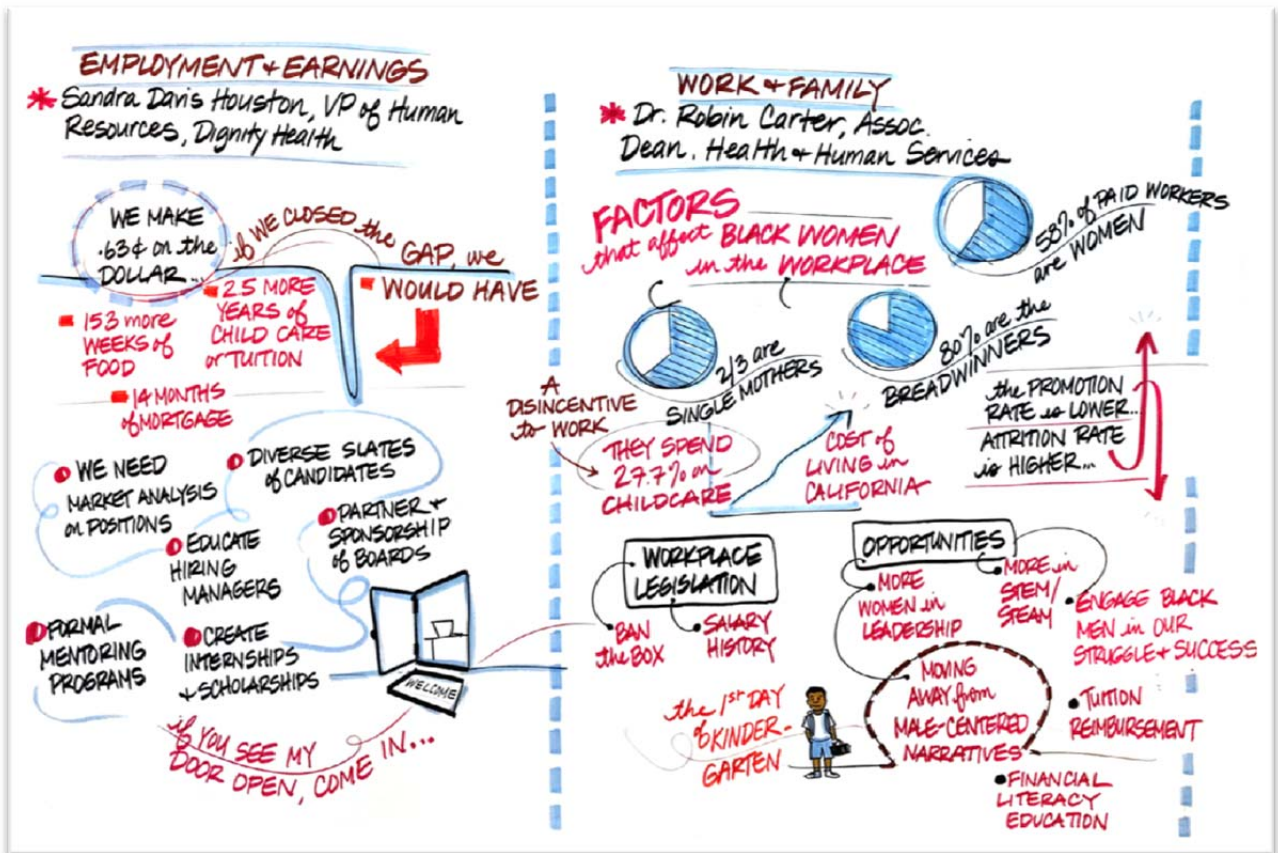 EMPLOYMENT + EARNINGS
* Sandra Davis Houston, VP of Human
Resources, Dignity Health
WE MAKE
.63¢ on the
DOLLAR...
if WE CLOSED the
GAP, we
WOULD HAVE
153 more
WEEKS of
FOOD
2.5 MORE
YEARS of
CHILD CARE
or TUITION
14 MONTHS
of MORTGAGE
WE NEED
MARKET ANALYSIS
on POSITIONS
DIVERSE SLATES
of CANDIDATES
EDUCATE
HIRING
MANAGERS
PARTNER +
SPONSORSHIP
of BOARDS
FORMAL
MENTORING
PROGRAMS
CREATE
INTERNSHIPS
+ SCHOLARSHIPS
WELCOME
if YOU SEE MY
DOOR OPEN, COME IN...
WORK + FAMILY
* Dr. Robin Carter, Assoc.
Dean. Health + Human Services
FACTORS
that affect BLACK WOMEN
in the WORKPLACE
58% of PAID WORKERS
are WOMEN
2/3 are
SINGLE MOTHERS
80% are the
BREADWINNERS
A
DISINCENTIVE
to WORK
THEY SPEND
27.7% on
CHILDCARE
COST of
LIVING in
CALIFORNIA
the PROMOTION
RATE is LOWER...
ATTRITION RATE
is HIGHER...
WORKPLACE
LEGISLATION
BAN
the BOX
SALARY
HISTORY
OPPORTUNITIES
MORE
WOMEN in
LEADERSHIP
MORE in
STEM/
STEAM
ENGAGE BLACK
MEN in OUR
STRUGGLE + SUCCESS
MOVING
AWAY from
MALE-CENTERED
NARRATIVES
TUITION
REIMBURSEMENT
FINANCIAL
LITERACY
EDUCATION
the 1ST DAY
of KINDER-
GARTEN